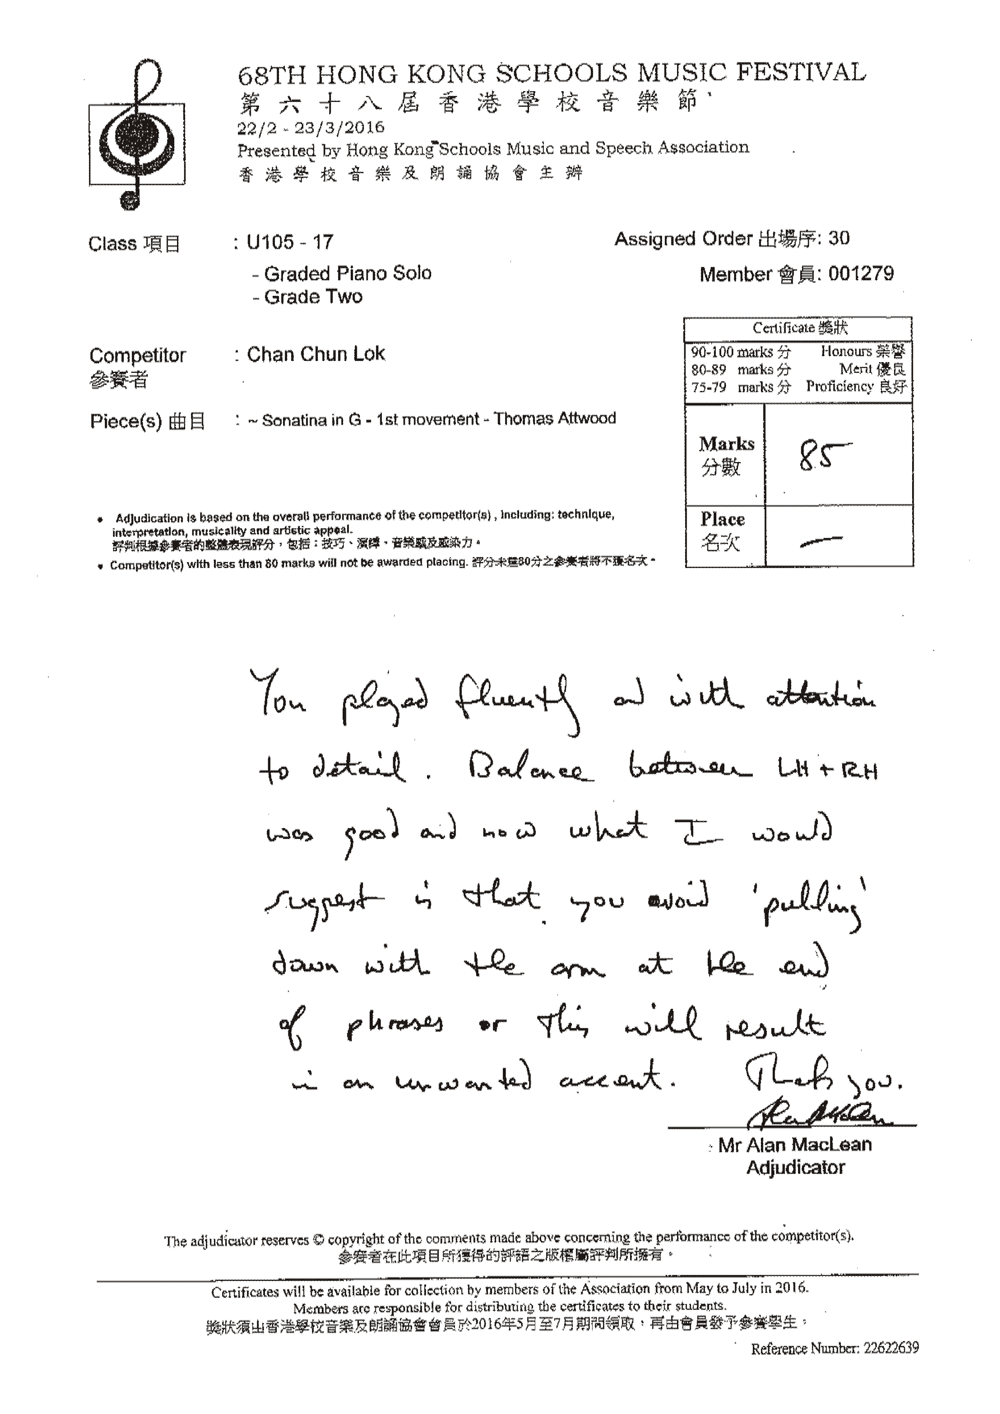 68TH HONG KONG SCHOOLS MUSIC FESTIVAL
第六十八屆香港學校音樂節
22/2 - 23/3/2016
Presented by Hong Kong Schools Music and Speech Association
香港學校音樂及朗誦協會主辦
Class 項目 : U105 - 17
Assigned Order 出場序: 30
- Graded Piano Solo
Member 會員: 001279
- Grade Two
Certificate 獎狀
90-100 marks 分 Honours 榮譽
80-89 marks 分 Merit 優良
75-79 marks 分 Proficiency 良好
Competitor : Chan Chun Lok
參賽者
Piece(s) 曲目 : ~ Sonatina in G - 1st movement - Thomas Attwood
Marks 85
分數
Place —
名次
• Adjudication is based on the overall performance of the competitor(s) , including: technique,
interpretation, musicality and artistic appeal.
評判根據參賽者的整體表現評分，包括：技巧、演繹、音樂感及感染力。
• Competitor(s) with less than 80 marks will not be awarded placing. 評分未達80分之參賽者將不獲名次。
You played fluently and with attention
to detail. Balance between LH + RH
was good and now what I would
suggest is that you avoid 'pulling'
down with the arm at the end
of phrases or this will result
in an unwanted accent. Thank you.
Mr Alan MacLean
Adjudicator
The adjudicator reserves © copyright of the comments made above concerning the performance of the competitor(s).
參賽者在此項目所獲得的評語之版權屬評判所擁有。
Certificates will be available for collection by members of the Association from May to July in 2016.
Members are responsible for distributing the certificates to their students.
獎狀須由香港學校音樂及朗誦協會會員於2016年5月至7月期間領取，再由會員發予參賽學生。
Reference Number: 22622639